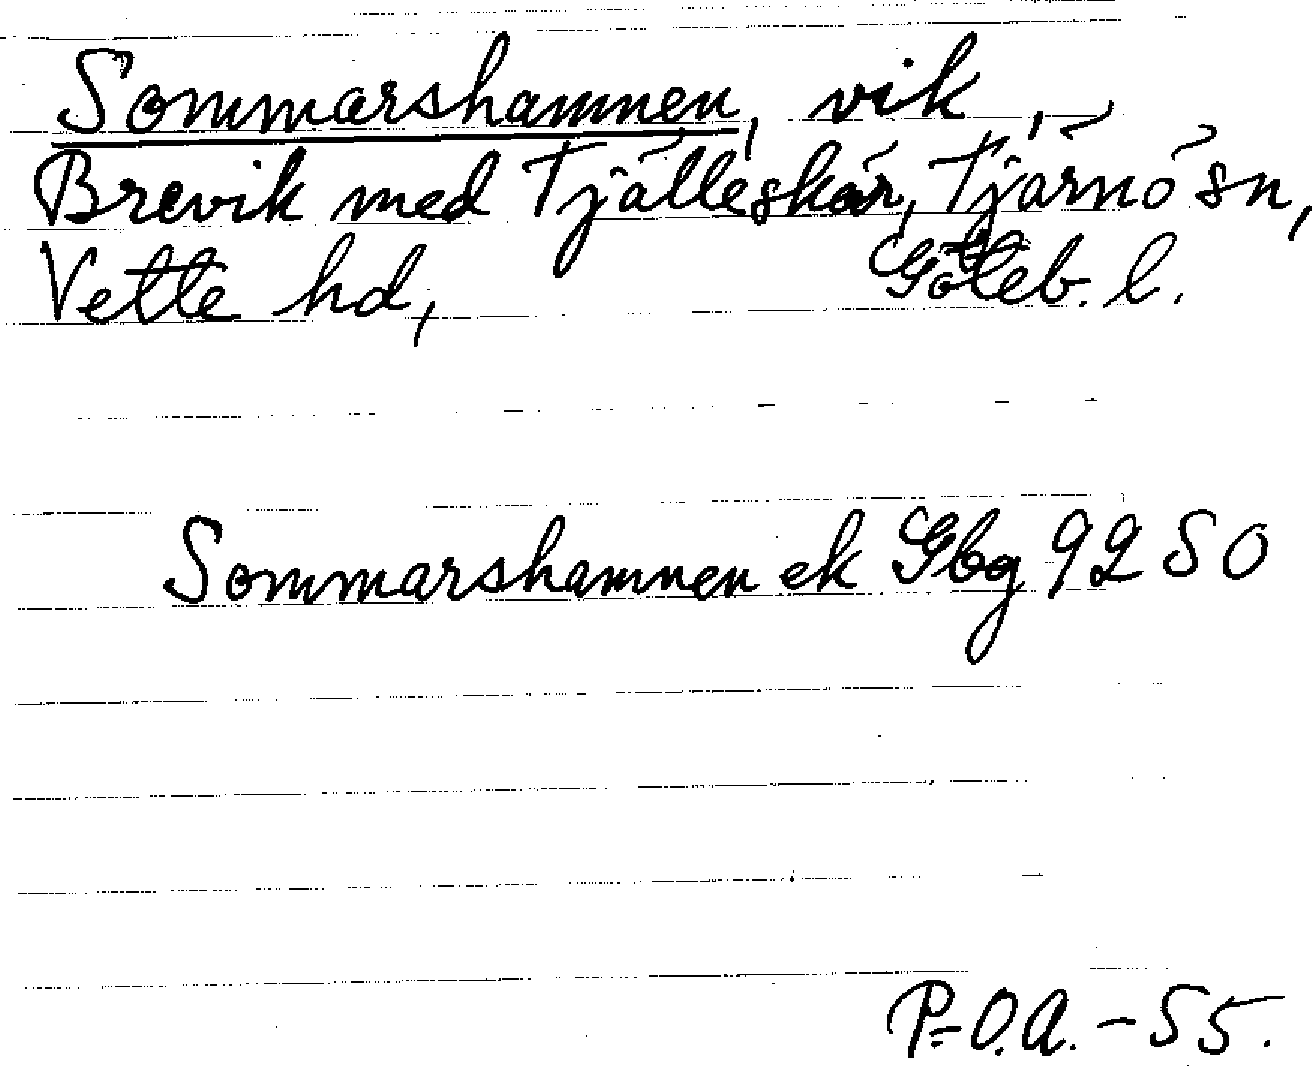 Sommarshamnen, vik,
Brevik med Tjälleskär, Tjärnö sn,
Vette hd, Göteb. l.
Sommarshamnen ek Gbg 92 SO
P-O.A. -55.